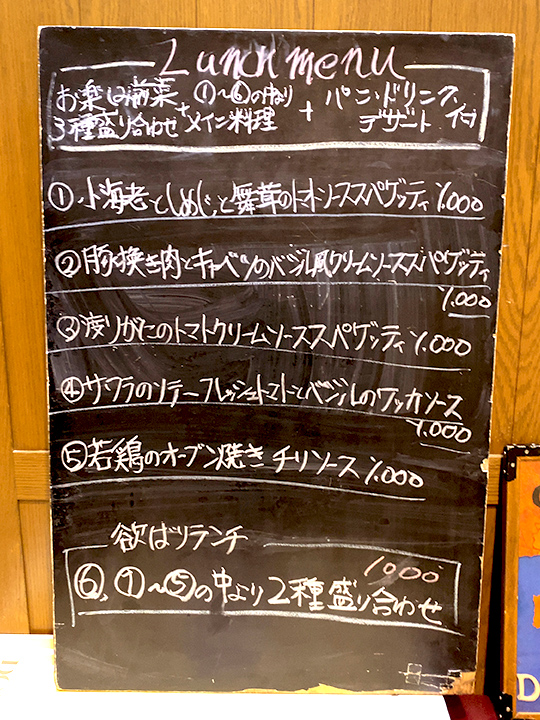 Lunch menu
お楽しみ前菜3種盛り合わせ + ①〜⑥の中よりメイン料理 + パン・ドリンク、デザート付
① 小海老としめじと舞茸のトマトソーススパゲッティ 1.000
② 豚挽き肉とキャベツのバジル風クリームソーススパゲッティ
1.000
③ 渡りがにのトマトクリームソーススパゲッティ 1.000
④ サワラのソテーフレッシュトマトとバジルの
ソース
1.000
⑤ 若鶏のオーブン焼きチリソース 1.000
欲ばりランチ
1000
⑥、①〜⑤の中より2種盛り合わせ
D